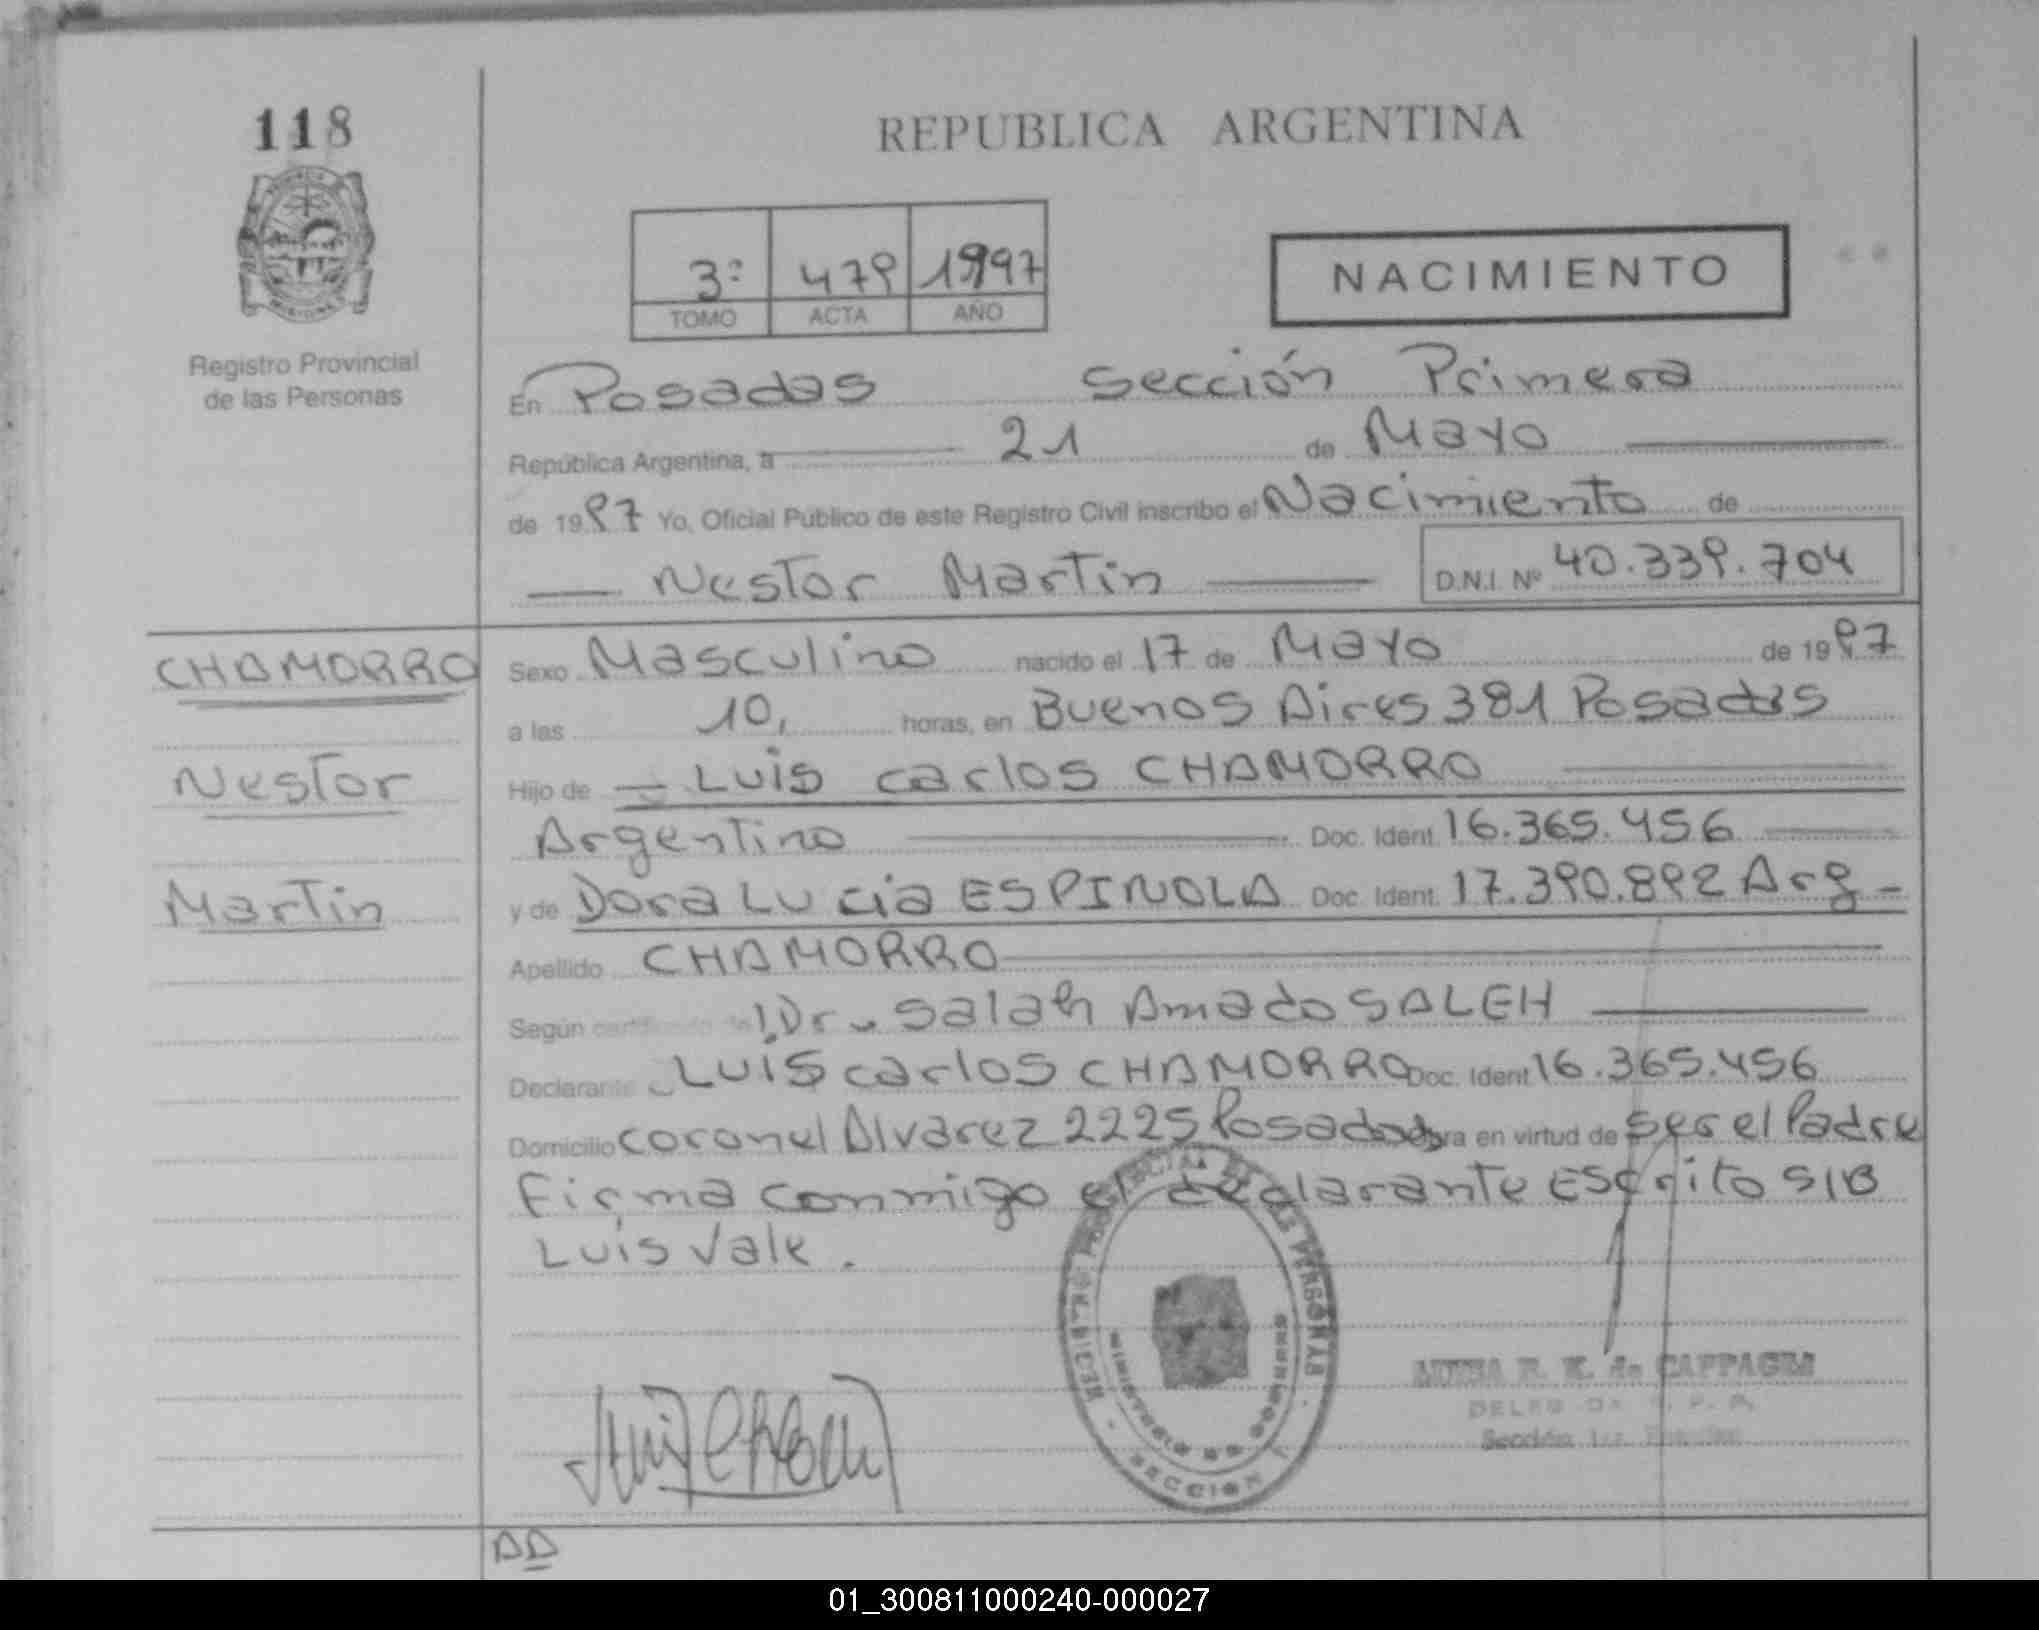 118
REPUBLICA ARGENTINA
3º 479 1997
TOMO ACTA AÑO
NACIMIENTO
Registro Provincial
de las Personas
En Posadas Sección Primera
República Argentina, a 21 de Mayo
de 1997 Yo, Oficial Público de este Registro Civil inscribo el Nacimiento de
Nestor Martin D.N.I. Nº 40.339.704
CHAMORRO
Nestor
Martin
Sexo Masculino nacido el 17 de Mayo de 1997
a las 10, horas, en Buenos Aires 381 Posadas
Hijo de Luis Carlos CHAMORRO
Argentino Doc. Ident. 16.365.456
y de Dora Lucia ESPINOLA Doc. Ident. 17.390.892 Arg
Apellido CHAMORRO
Según certificado de Dr. Salah Amado SALEH
Declarante Luis Carlos CHAMORRO Doc. Ident 16.365.456
Domicilio Coronel Alvarez 2225 Posadas obra en virtud de ser el Padre
Firma conmigo el declarante Escrito S/B
Luis Vale.
REGISTRO PROVINCIAL DE LAS PERSONAS
MINISTERIO DE GOBIERNO
SECCION 1
de CAPPAGLI
Sección 1ra.
DD
01_300811000240-000027